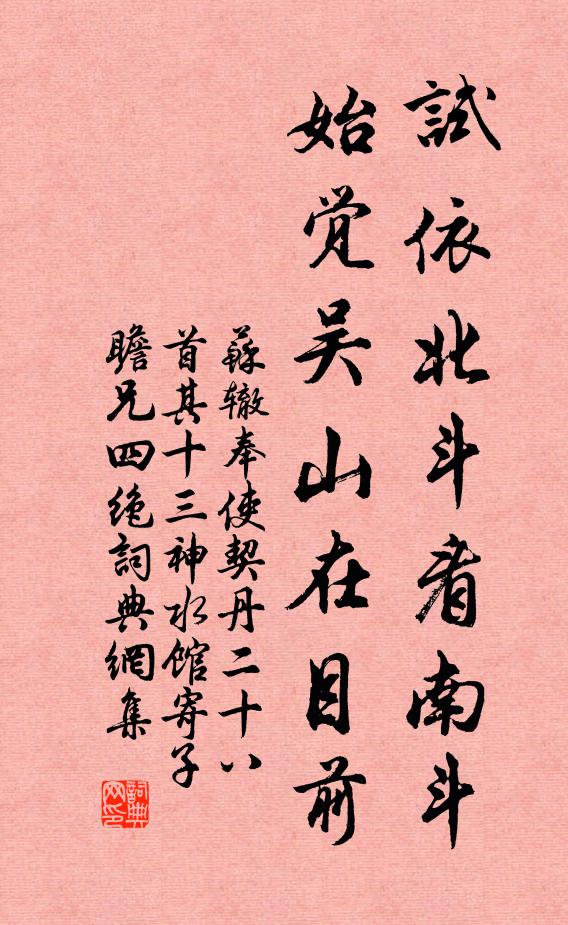 試依北斗看南斗
始覚吴山在目前
蘇辙奉使契丹二十八
首其十三神水馆寄子
瞻兄四绝詞典網集
詞典
网印